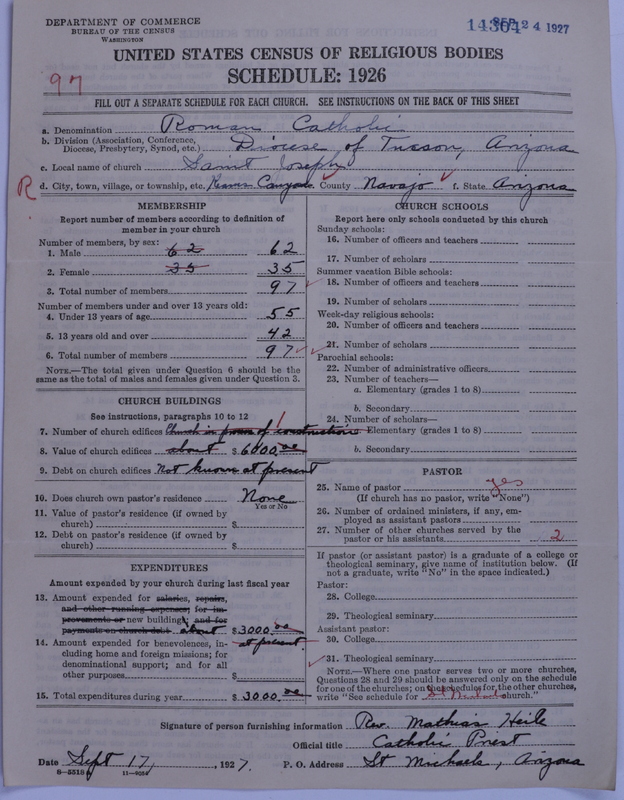 DEPARTMENT OF COMMERCE
BUREAU OF THE CENSUS
WASHINGTON
SEP 24 1927
UNITED STATES CENSUS OF RELIGIOUS BODIES
SCHEDULE: 1926
97
FILL OUT A SEPARATE SCHEDULE FOR EACH CHURCH. SEE INSTRUCTIONS ON THE BACK OF THIS SHEET
a. Denomination Roman Catholic
b. Division (Association, Conference, Diocese, Presbytery, Synod, etc.) Diocese of Tucson, Arizona
c. Local name of church Saint Joseph
R d. City, town, village, or township, etc. Keams Canyon County Navajo f. State Arizona
MEMBERSHIP
Report number of members according to definition of
member in your church
Number of members, by sex:
1. Male 62 62
2. Female 35 35
3. Total number of members 97
Number of members under and over 13 years old:
4. Under 13 years of age 55
5. 13 years old and over 42
6. Total number of members 97
NOTE.—The total given under Question 6 should be
same as the total of males and females given under Question 3.
CHURCH BUILDINGS
See instructions, paragraphs 10 to 12
7. Number of church edifices Church in process of construction 1
8. Value of church edifices about $ 6000.00
9. Debt on church edifices Not known at present
10. Does church own pastor's residence None
Yes or No
11. Value of pastor's residence (if owned by
church) $
12. Debt on pastor's residence (if owned by
church) $
EXPENDITURES
Amount expended by your church during last fiscal year
13. Amount expended for salaries, repairs,
and other running expenses; for im-
provements or new building; and for
payments on church debt about $ 3000.00
14. Amount expended for benevolences, in- at present
cluding home and foreign missions; for
denominational support; and for all
other purposes $
15. Total expenditures during year $ 3000.00
CHURCH SCHOOLS
Report here only schools conducted by this church
Sunday schools:
16. Number of officers and teachers
17. Number of scholars
Summer vacation Bible schools:
18. Number of officers and teachers
19. Number of scholars
Week-day religious schools:
20. Number of officers and teachers
21. Number of scholars
Parochial schools:
22. Number of administrative officers
23. Number of teachers—
a. Elementary (grades 1 to 8)
b. Secondary
24. Number of scholars—
Elementary (grades 1 to 8)
b. Secondary
PASTOR
25. Name of pastor yes
(If church has no pastor, write "None")
26. Number of ordained ministers, if any, em-
ployed as assistant pastors
27. Number of other churches served by the
pastor or his assistants 2
If pastor (or assistant pastor) is a graduate of a college or
theological seminary, give name of institution below. (If
not a graduate, write "No" in the space indicated.)
Pastor:
28. College
29. Theological seminary
Assistant pastor:
30. College
31. Theological seminary
NOTE.—Where one pastor serves two or more churches,
Questions 28 and 29 should be answered only on the schedule
for one of the churches; on the schedules for the other churches,
write "See schedule for St Michaels church."
Signature of person furnishing information Rev. Mathias Heile
Official title Catholic Priest
Date Sept 17, 1927. P. O. Address St Michaels, Arizona
8—5518 11—9054